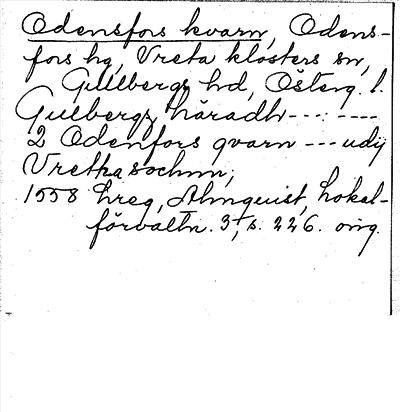 Odensfors kvarn, Odens-
fors hg, Vreta klosters sn,
Gullbergs hd, Österg. l.
Gulbergz häradh --- : ----
2 Odenfors qvarn --- udij
Vretha sochnn;
1558 Lreg, Almquist, Lokal-
förvaltn. 3⁴, s. 226. orig.